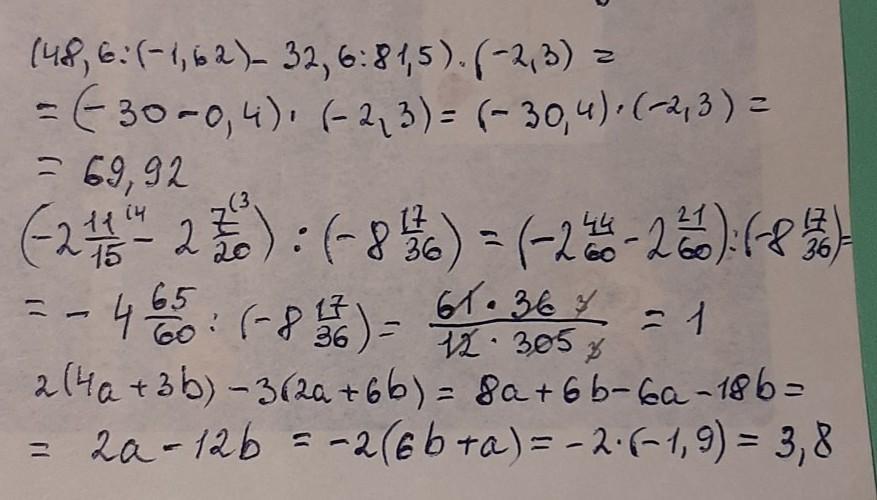 (48,6:(-1,62)- 32,6:81,5)·(-2,3) =
= (-30-0,4)· (-2,3) = (-30,4)·(-2,3) =
= 69,92
(-2 11/15 (4 - 2 7/20 (3) : (-8 17/36) = (-2 44/60 - 2 21/60):(-8 17/36)=
= - 4 65/60 : (-8 17/36) = 61·36 3/12·305 5 = 1
2(4a+3b)-3(2a+6b) = 8a+6b-6a-18b =
= 2a-12b = -2(6b+a) = -2·(-1,9) = 3,8